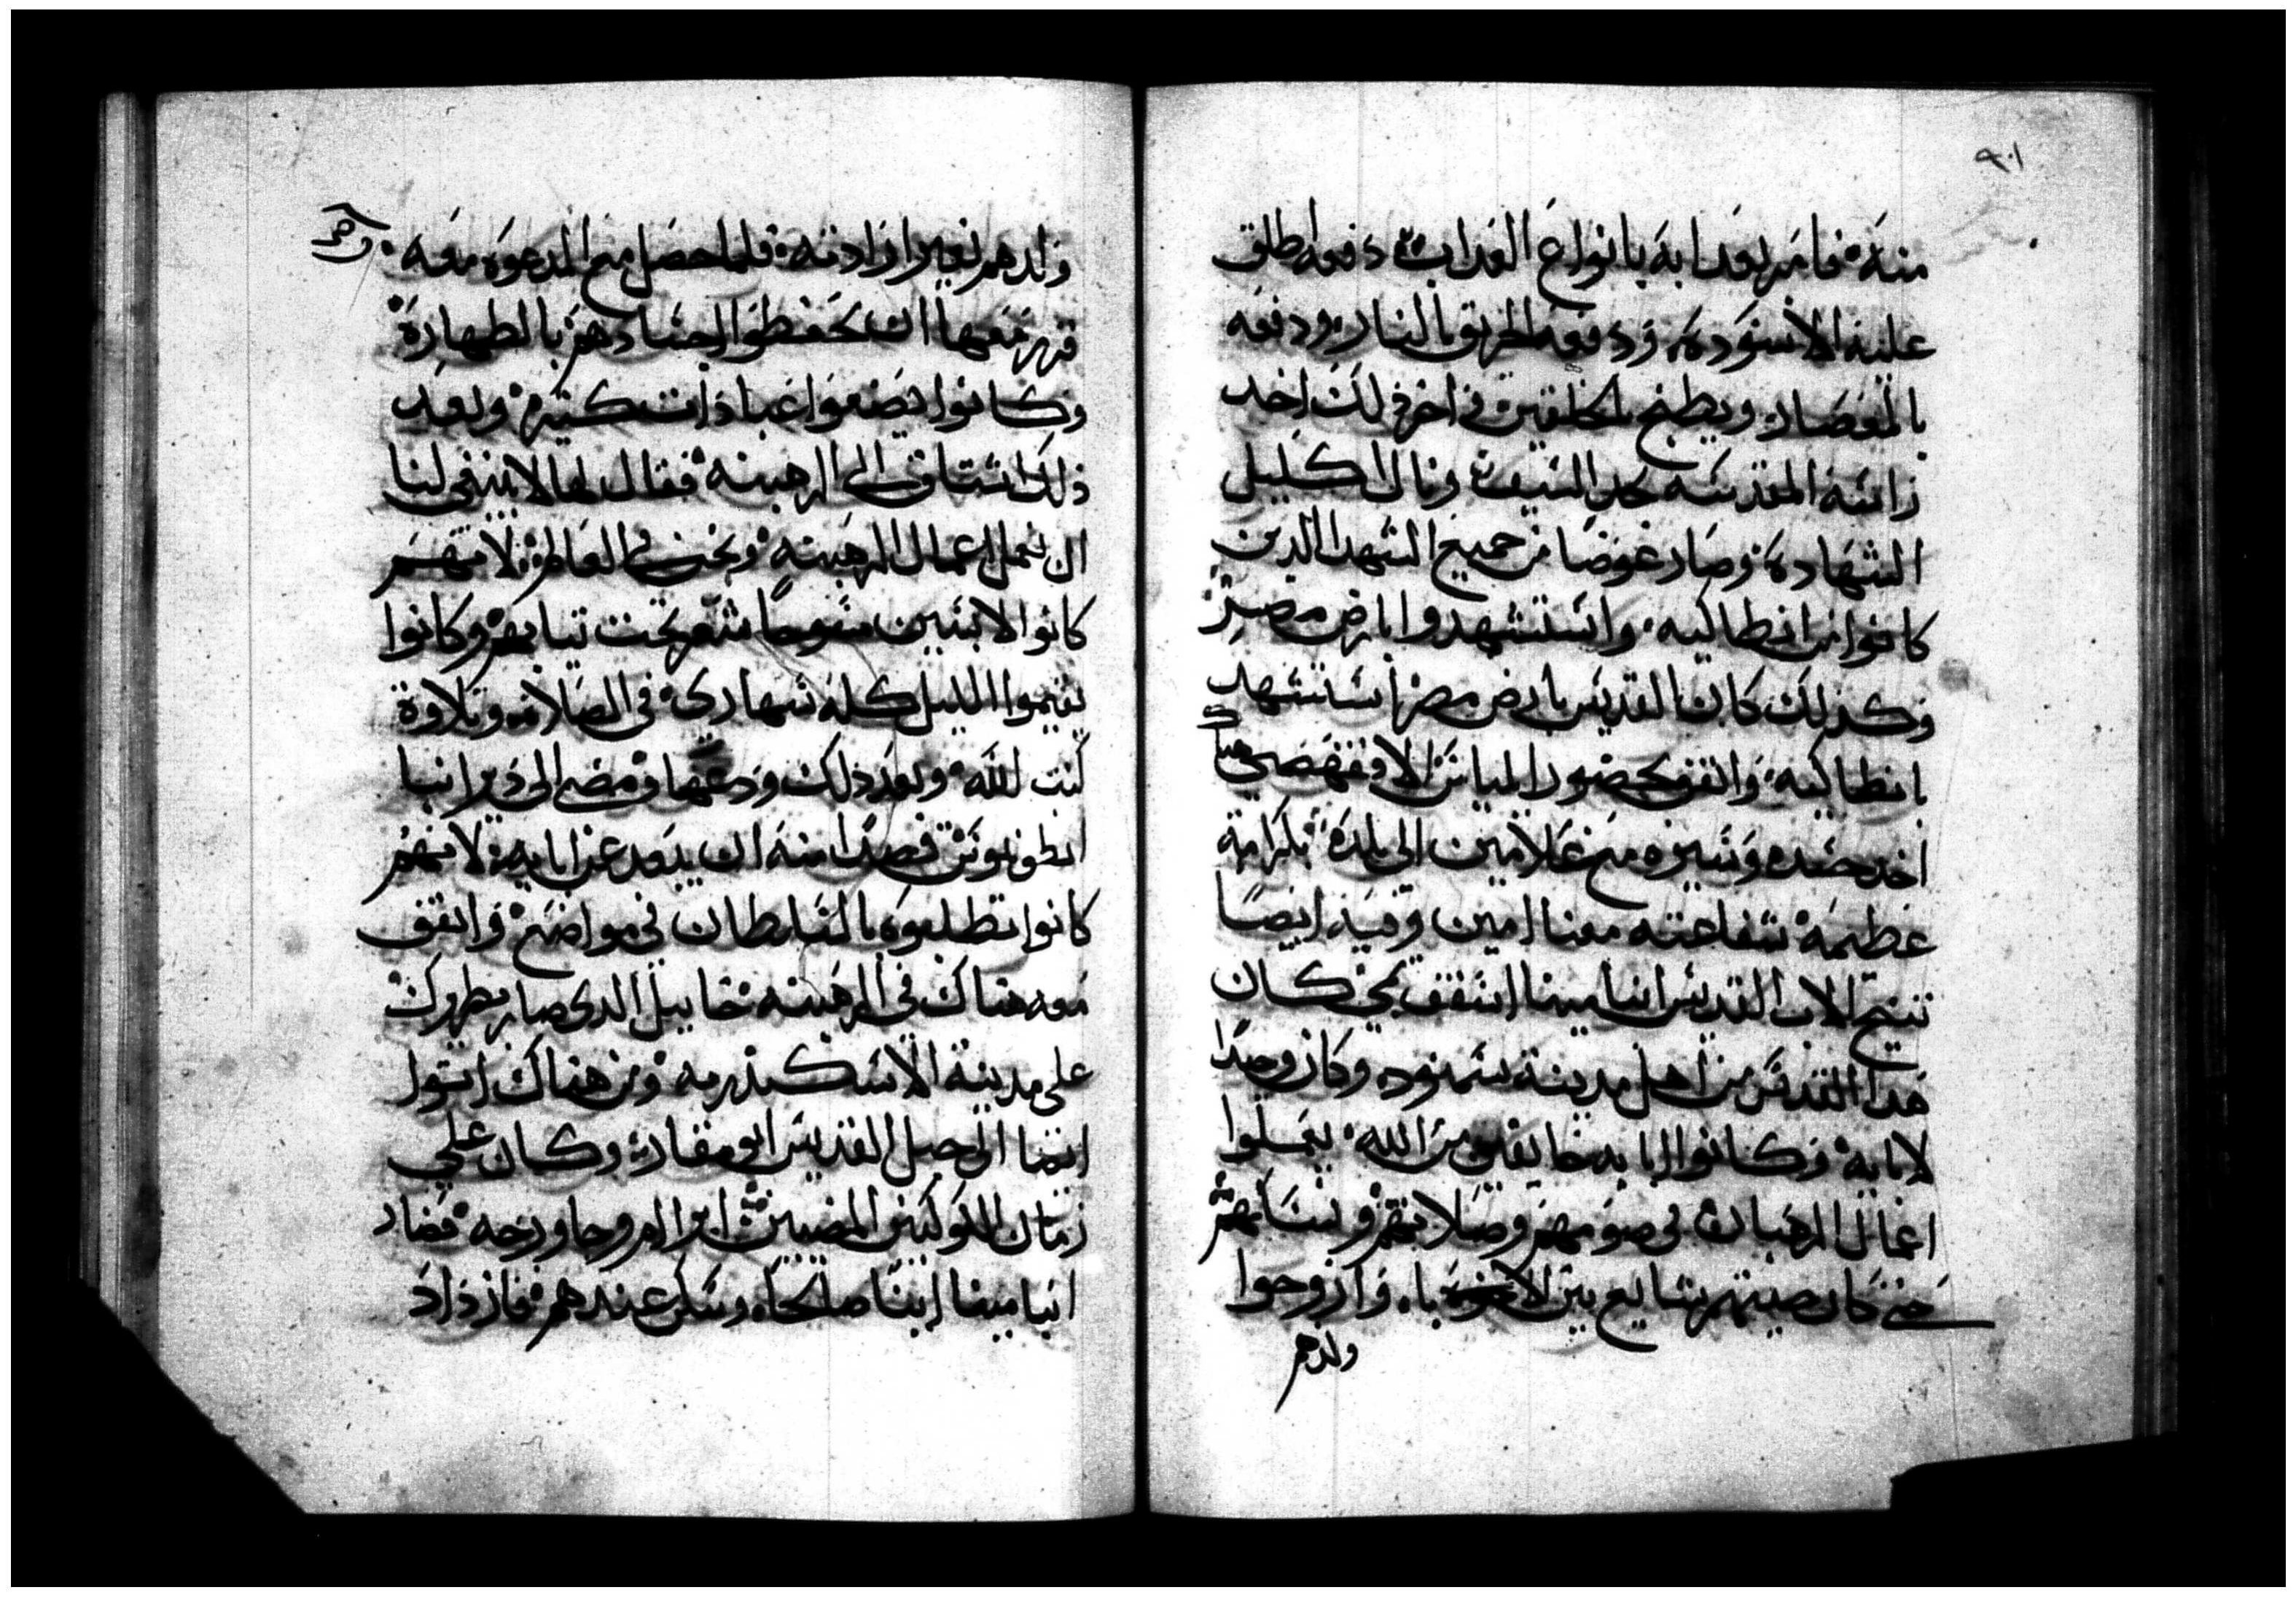 منه فامر بعدابه بانواع العداب دفعه اطلق
عليه الاسوده ودفعه الحريق بالنار ودفعه
بالمعصار ويطبخ في اخر ذلك اخد
راسه المقدسه بحد السيف ونال اكليل
الشهاده وصار عوضا من جميع الشهدا الدين
كانوا من انطاكيه واستشهدوا بارض مصر
وكذلك كان القديس بارض مصر استشهد
بانطاكيه واتفق بحضور الاقفهصي
اخد جسده وسيره مع غلامين الى بلده بكرامة
عظيمة شفاعته معنا امين وفيه ايضا
تنيح الاب القديس انبا مينا اسقف تمي كان
هدا القديس من اهل مدينة سمنود وكان وحدا
لابايه وكانوا ابايه خايفين من الله يعملوا
اعمال الرهبان في صومهم وصلاتهم ونسابهم
حتى كان صيتهم شايع بين باه وازوجوا
ولدهم
ولدهم بغير ارادته فلما حصل مع المدعوه معه
قرر معها ان يحفظوا اجسادهم بالطهارة
وكانوا يصنعوا عبادات كتيره وبعد
ذلك اشتاق الى الرهبنه فقال لها لا ينبغي لنا
ان نعمل اعمال الرهبنه ونحن في العالم لانهم
كانوا لابسين مسوحا شعر تحت تيابهم وكانوا
يقيموا الليل كله سهارى في الصلاه وتلاوة
كتب الله وبعد ذلك ودعها ومضى الى دير انبا
انطونيوس قصدا منه ان يبعد عن ابايه لانهم
كانوا تطلبوه بالسلطان في مواضع واتفق
معه هناك في الرهبنه خاييل الدى صار بطريرك
على مدينة الاسكندريه ومن هناك اتوا
ايضا الى جبل القديس ابو مقار وكان على
زمان المضيين ابرام وجاورجه فصار
انبا مينا ابنا صالحا وسكن عندهم فازداد